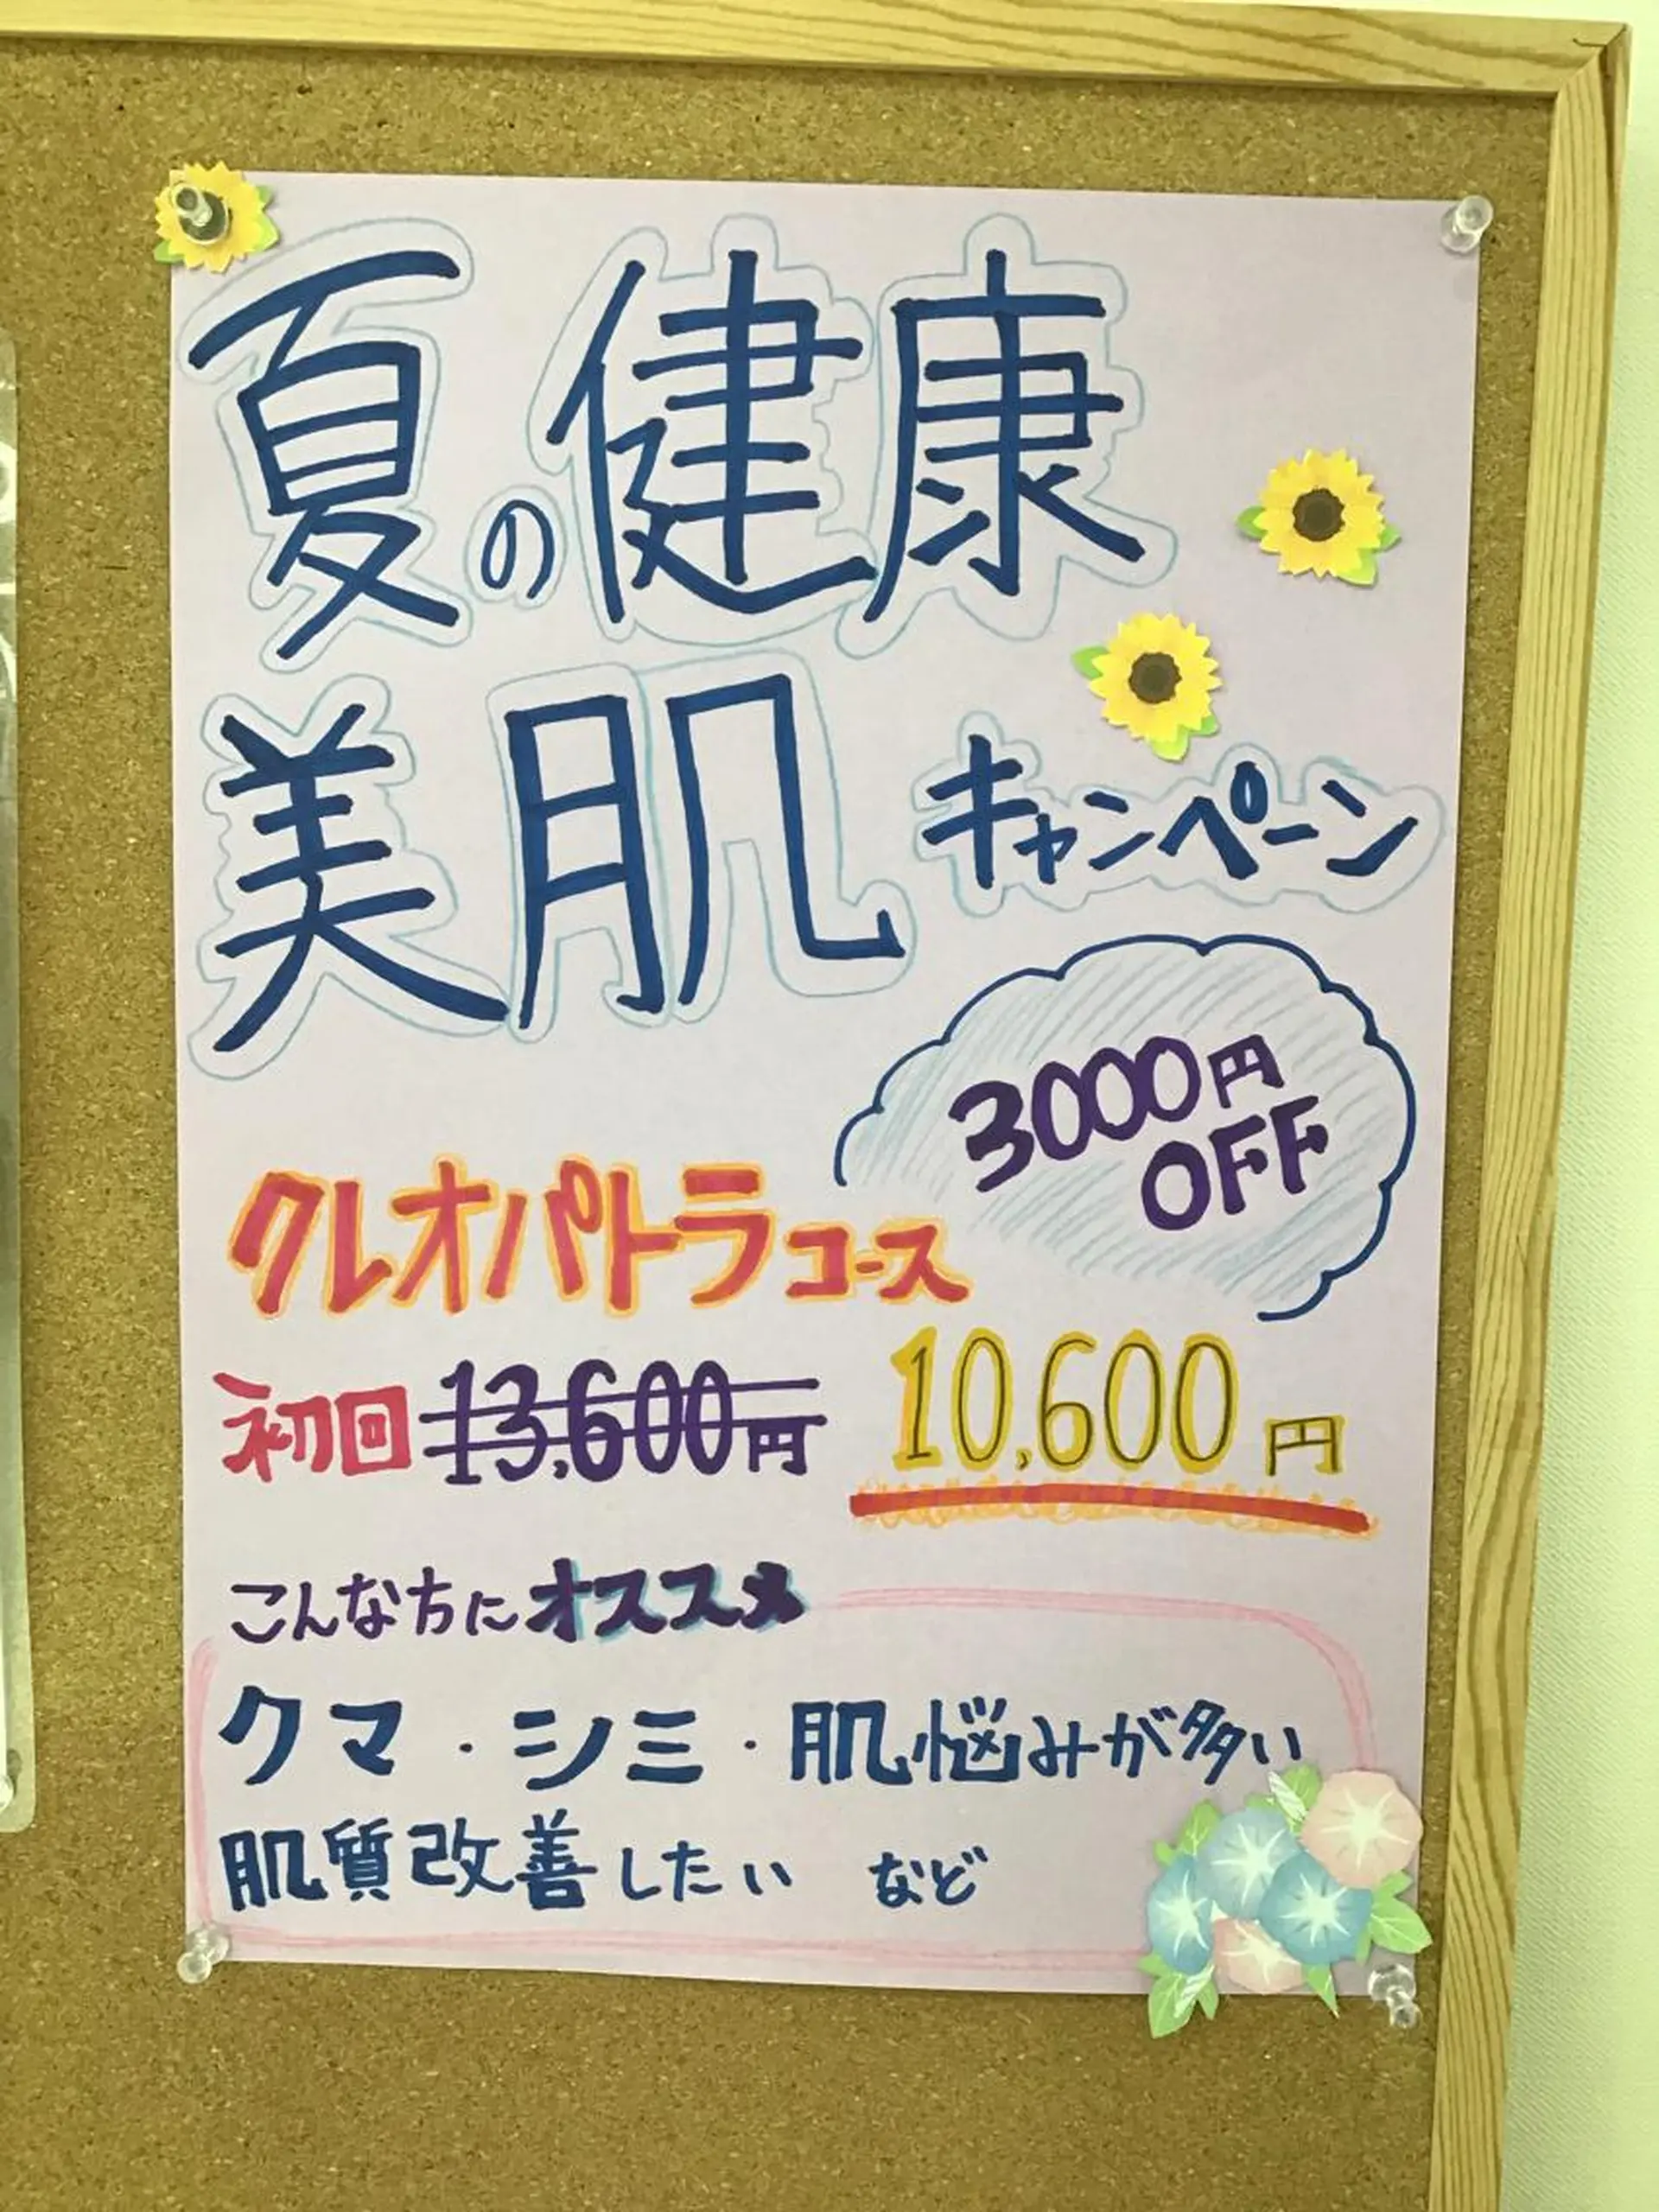 夏の健康
美肌キャンペーン
3000円
OFF
クレオパトラコース
初回 13,600円 10,600円
こんな方にオススメ
クマ・シミ・肌悩みが多い
肌質改善したい など